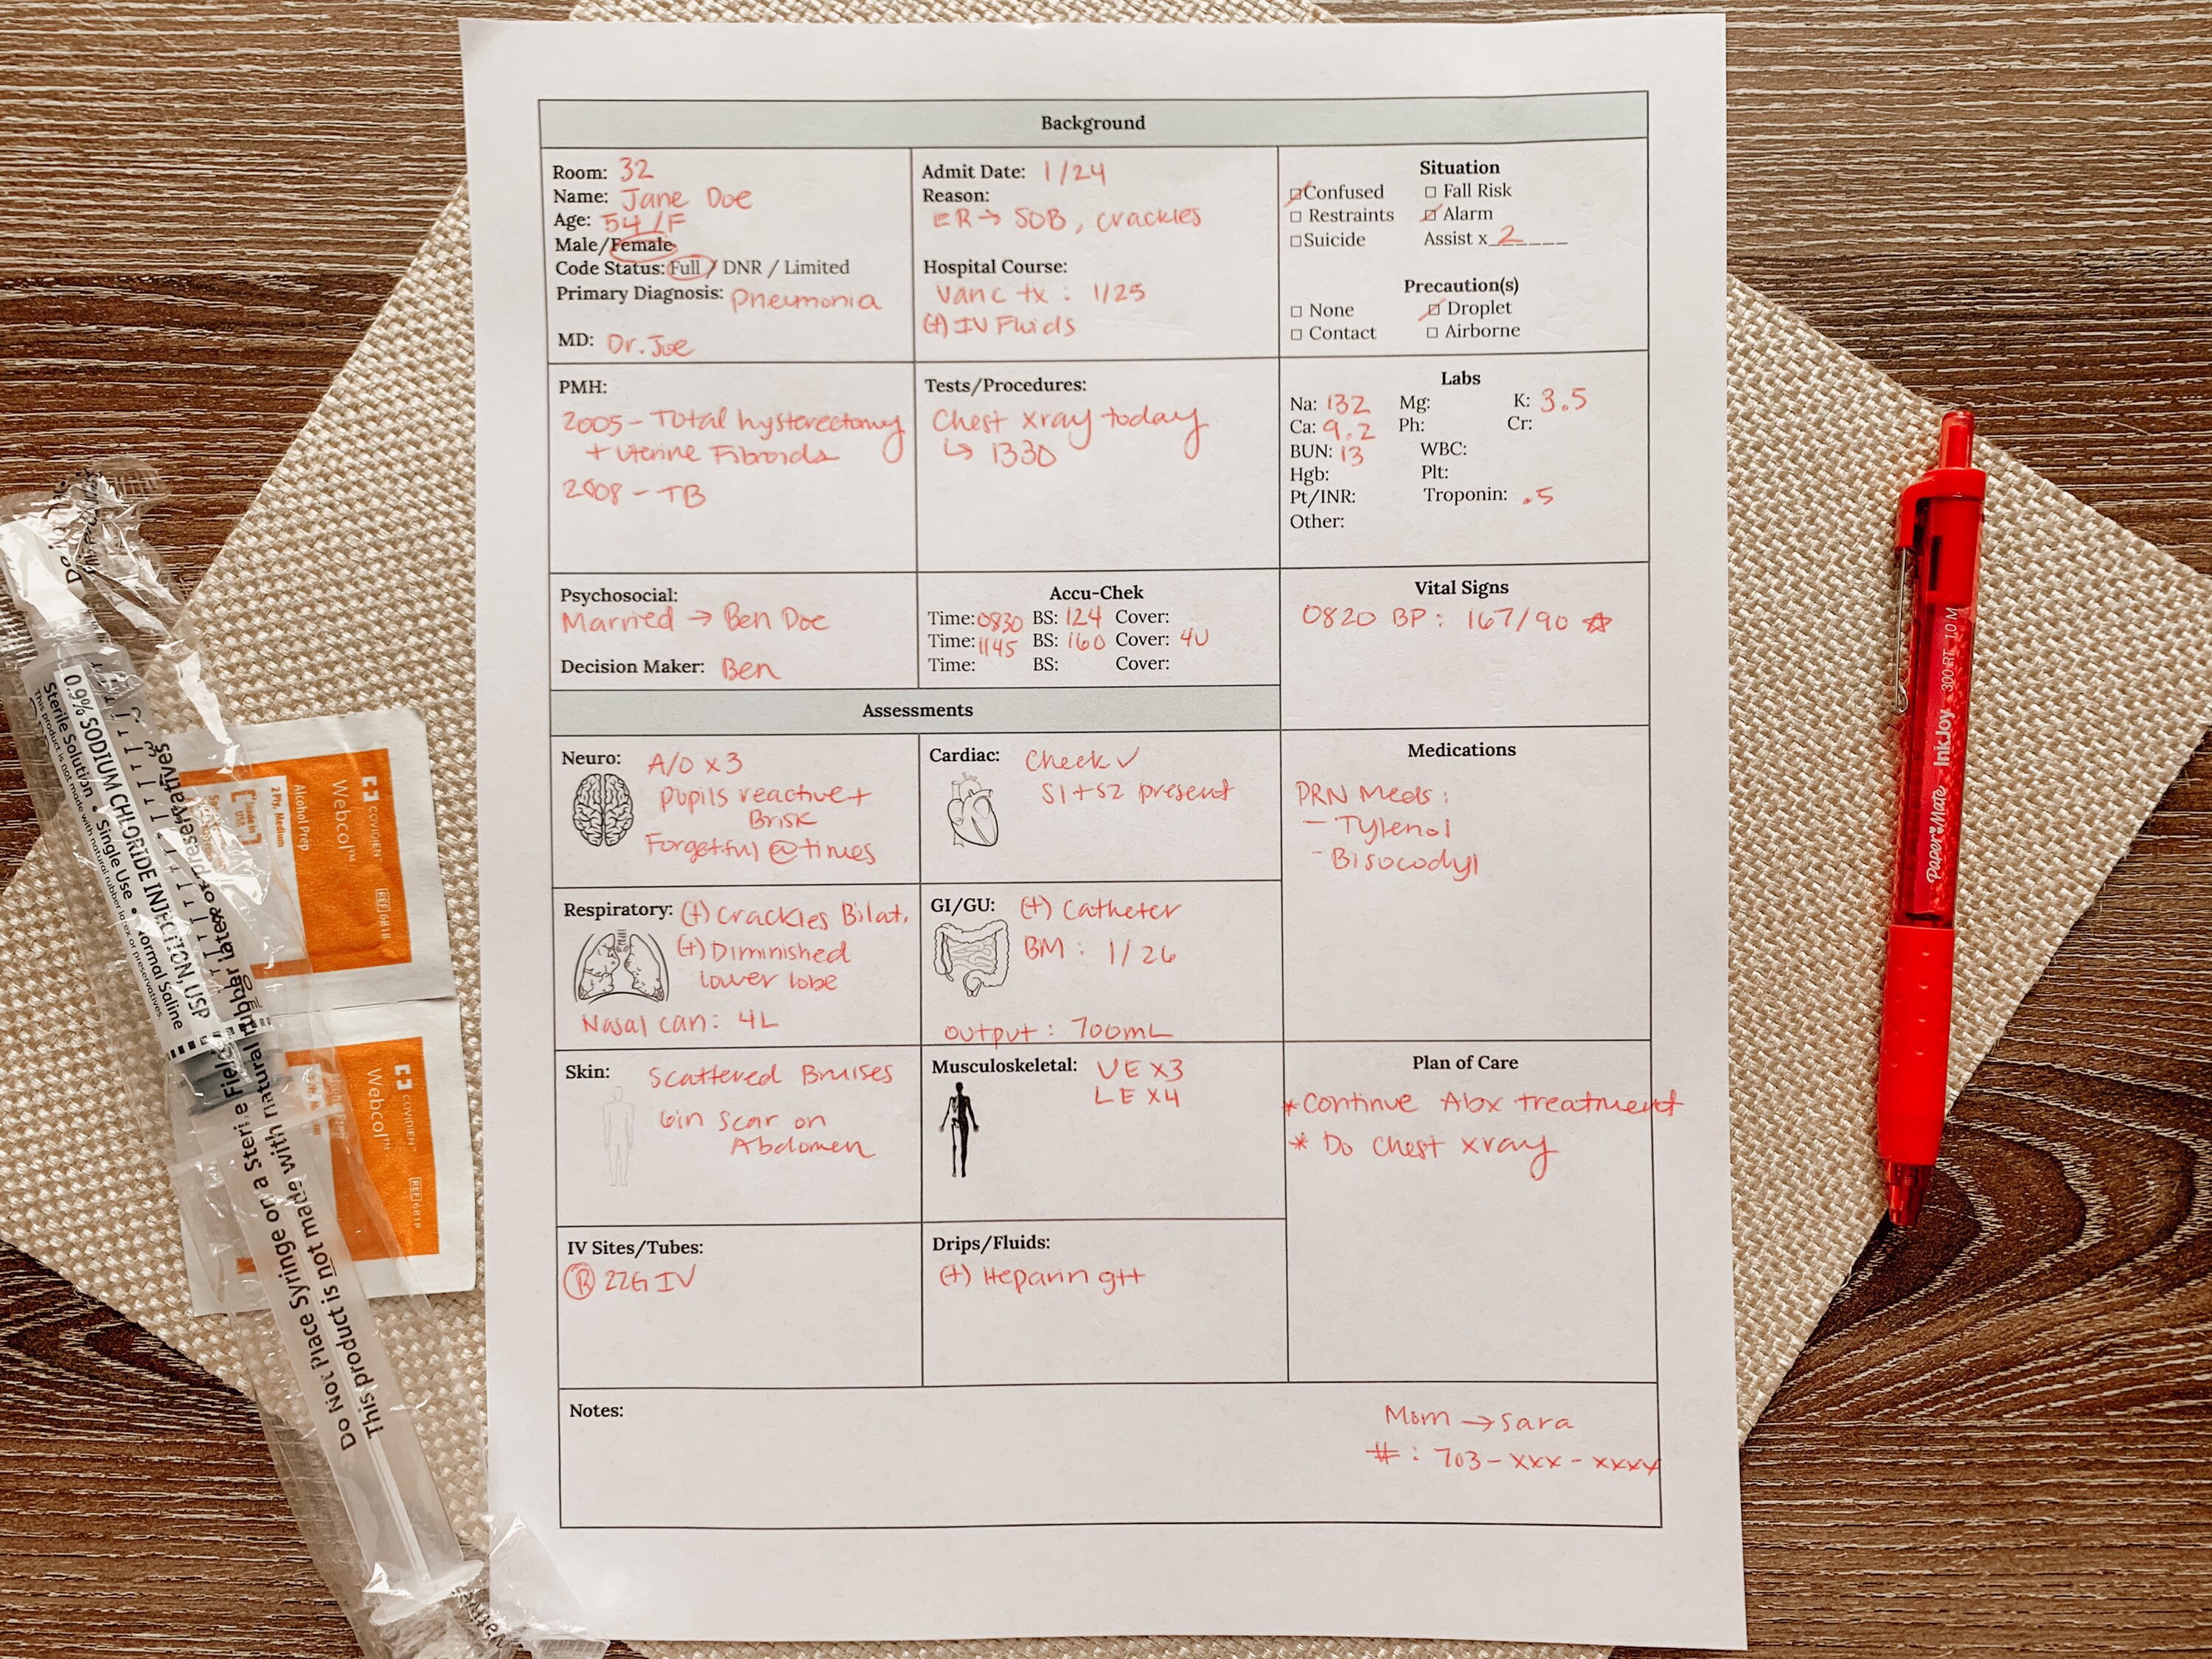 Background
Room: 32
Name: Jane Doe
Age: 54/F
Male/Female
Code Status: Full / DNR / Limited
Primary Diagnosis: Pneumonia
MD: Dr. Joe
Admit Date: 1/24
Reason:
ER → SOB, crackles
Hospital Course:
Vanc tx : 1/25
(+) IV Fluids
Situation
Confused
Fall Risk
Restraints
Alarm
Suicide
Assist x 2
Precaution(s)
None
Droplet
Contact
Airborne
PMH:
2005 - Total hysterectomy
+ Uterine Fibroids
2008 - TB
Tests/Procedures:
Chest xray today
↳ 1330
Labs
Na: 132 Mg: K: 3.5
Ca: 9.2 Ph: Cr:
BUN: 13 WBC:
Hgb: Plt:
Pt/INR: Troponin: .5
Other:
Psychosocial:
Married → Ben Doe
Decision Maker: Ben
Accu-Chek
Time: 0830 BS: 124 Cover:
Time: 1145 BS: 160 Cover: 4U
Time: BS: Cover:
Vital Signs
0820 BP: 167/90 ☆
Assessments
Neuro: A/O x3
pupils reactive +
Brisk
Forgetful @ times
Cardiac: Check ✓
S1 + S2 present
Medications
PRN Meds:
- Tylenol
- Bisocodyl
Respiratory: (+) Crackles Bilat.
(+) Diminished
lower lobe
Nasal can: 4L
GI/GU: (+) Catheter
BM: 1/26
output: 700mL
Skin: Scattered Bruises
6in scar on
Abdomen
Musculoskeletal: UE x3
LE x4
Plan of Care
* Continue Abx treatment
* Do chest xray
IV Sites/Tubes:
Ⓡ 22G IV
Drips/Fluids:
(+) Heparin gtt
Notes:
Mom → Sara
#: 703-xxx-xxxx
0.9% SODIUM CHLORIDE INJECTION, USP
Sterile Solution • Single Use • Normal Saline
This product is not made with natural rubber latex or preservatives.
Do Not Place Syringe on a Sterile Field
This product is not made with natural rubber latex or preservatives
COVIDIEN
Webcol™
Alcohol Prep
2 Ply, Medium
REF 6818
COVIDIEN
Webcol™
REF 6818
Paper Mate InkJoy 300 RT 1.0 M